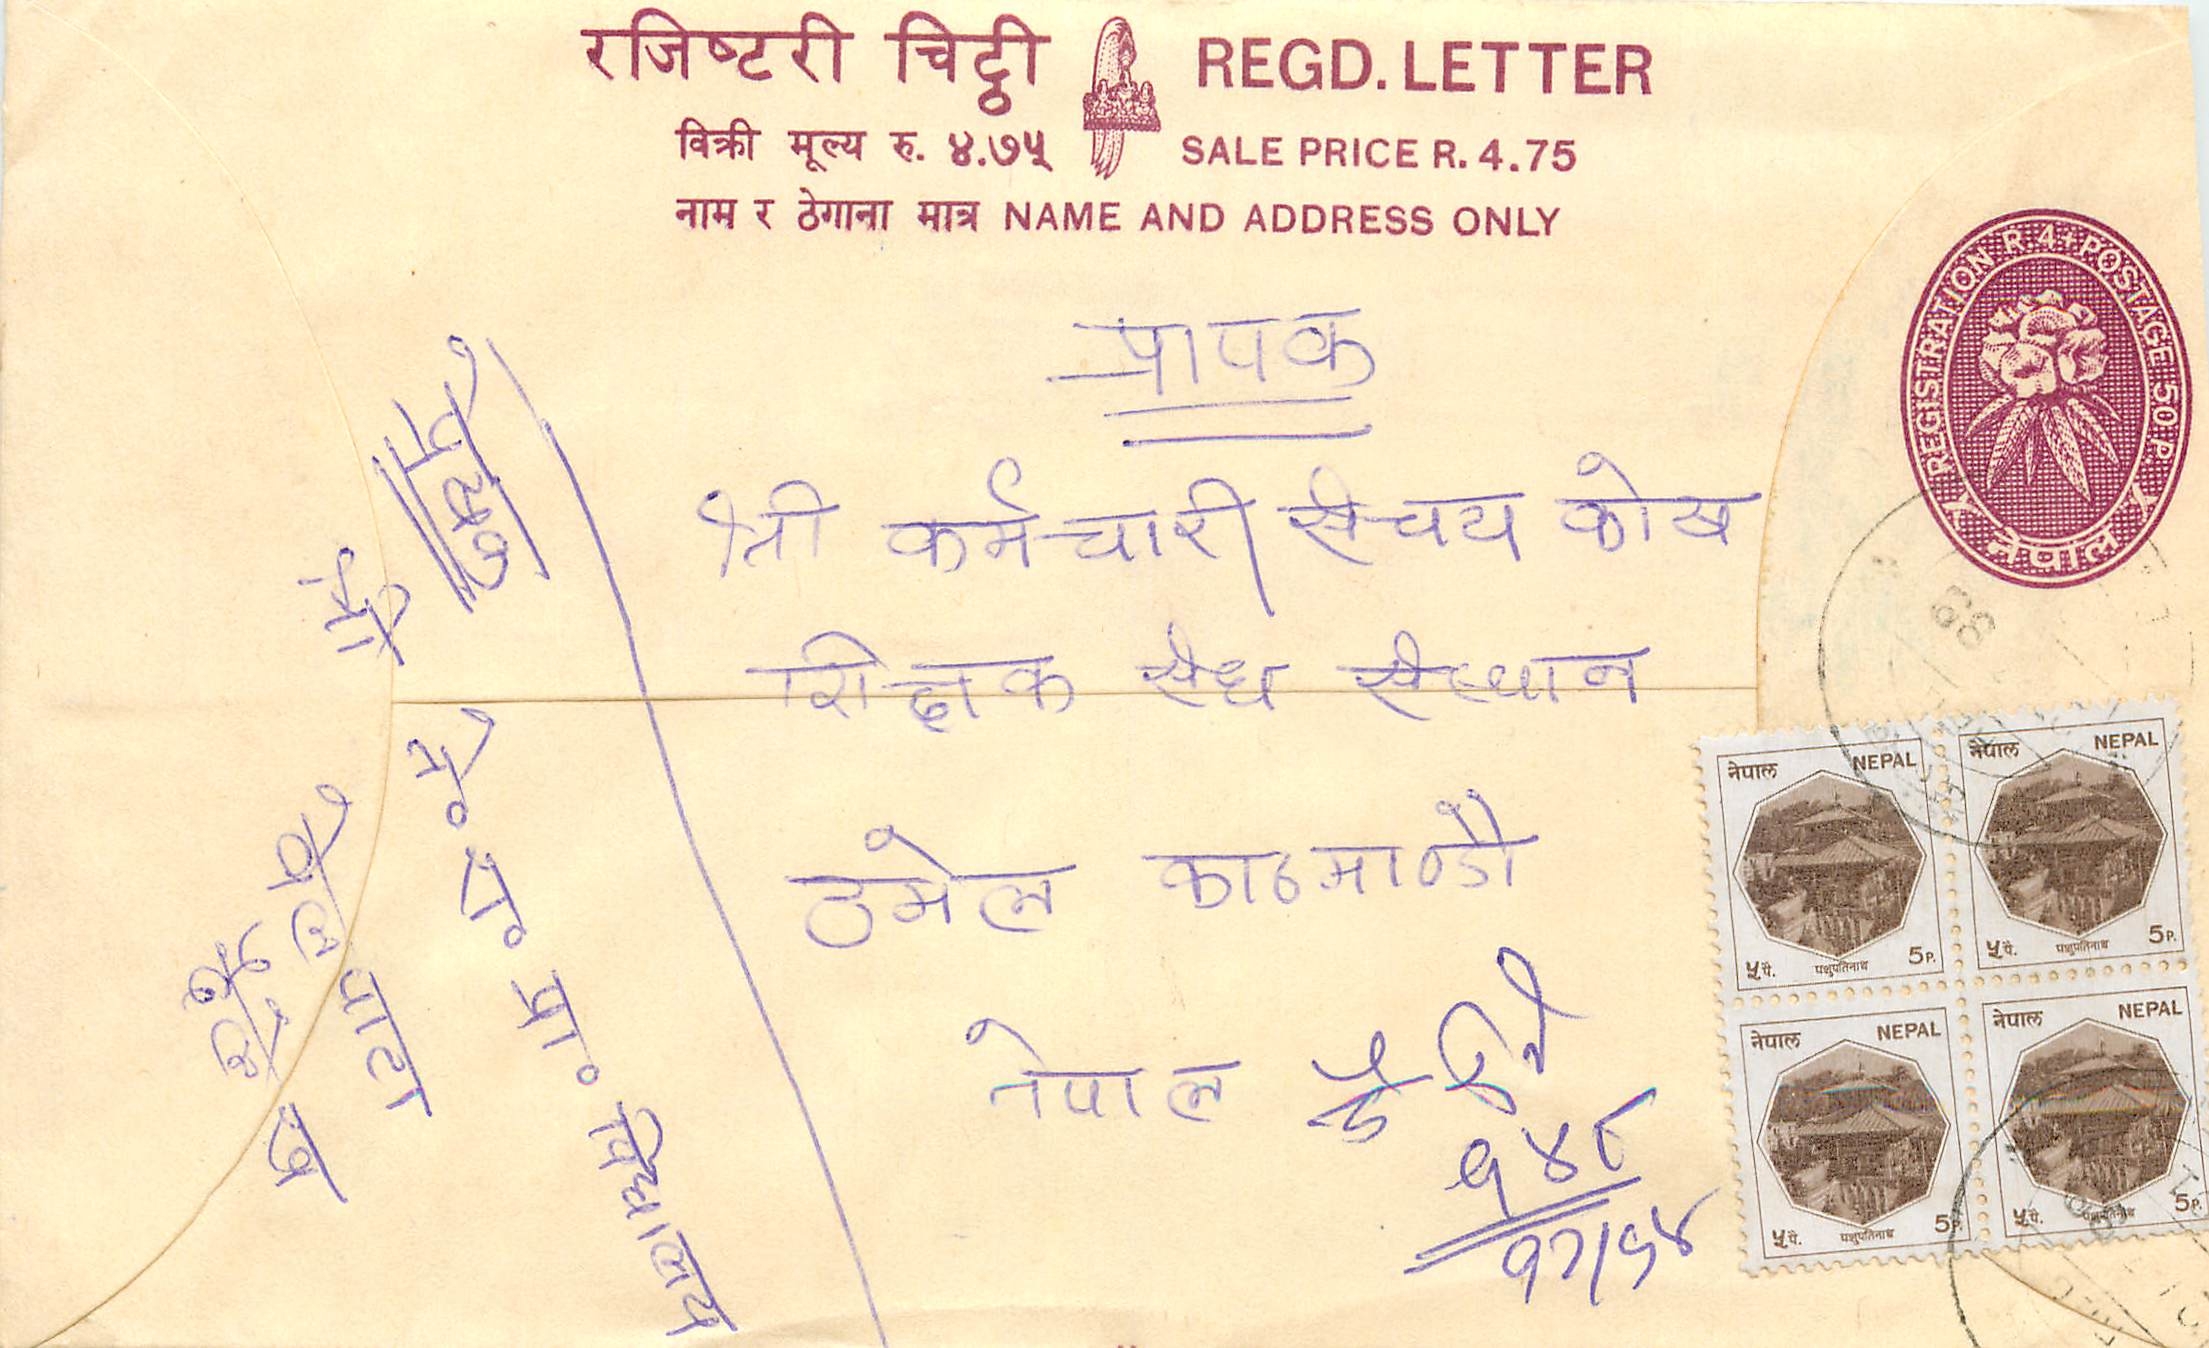 रजिष्टरी चिट्ठी REGD. LETTER
विक्री मूल्य रु. ४.७५ SALE PRICE R. 4.75
नाम र ठेगाना मात्र NAME AND ADDRESS ONLY
REGISTRATION R. 4+POSTAGE 50 P.
नेपाल
प्रापक
श्री कर्मचारी संचय कोष
शिक्षक संघ संस्थान
ठमेल काठमाण्डौ
नेपाल
१४८
प्रेषक
श्री ने. रा. प्रा. विद्यालय
वेलपाटा
नेपाल NEPAL
५ पै. पशुपतिनाथ 5 P.
नेपाल NEPAL
५ पै. पशुपतिनाथ 5 P.
नेपाल NEPAL
५ पै. पशुपतिनाथ 5 P.
नेपाल NEPAL
५ पै. पशुपतिनाथ 5 P.